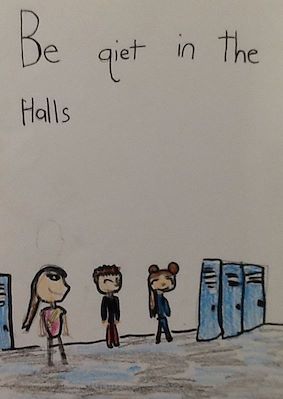 Be qiet in the
Halls